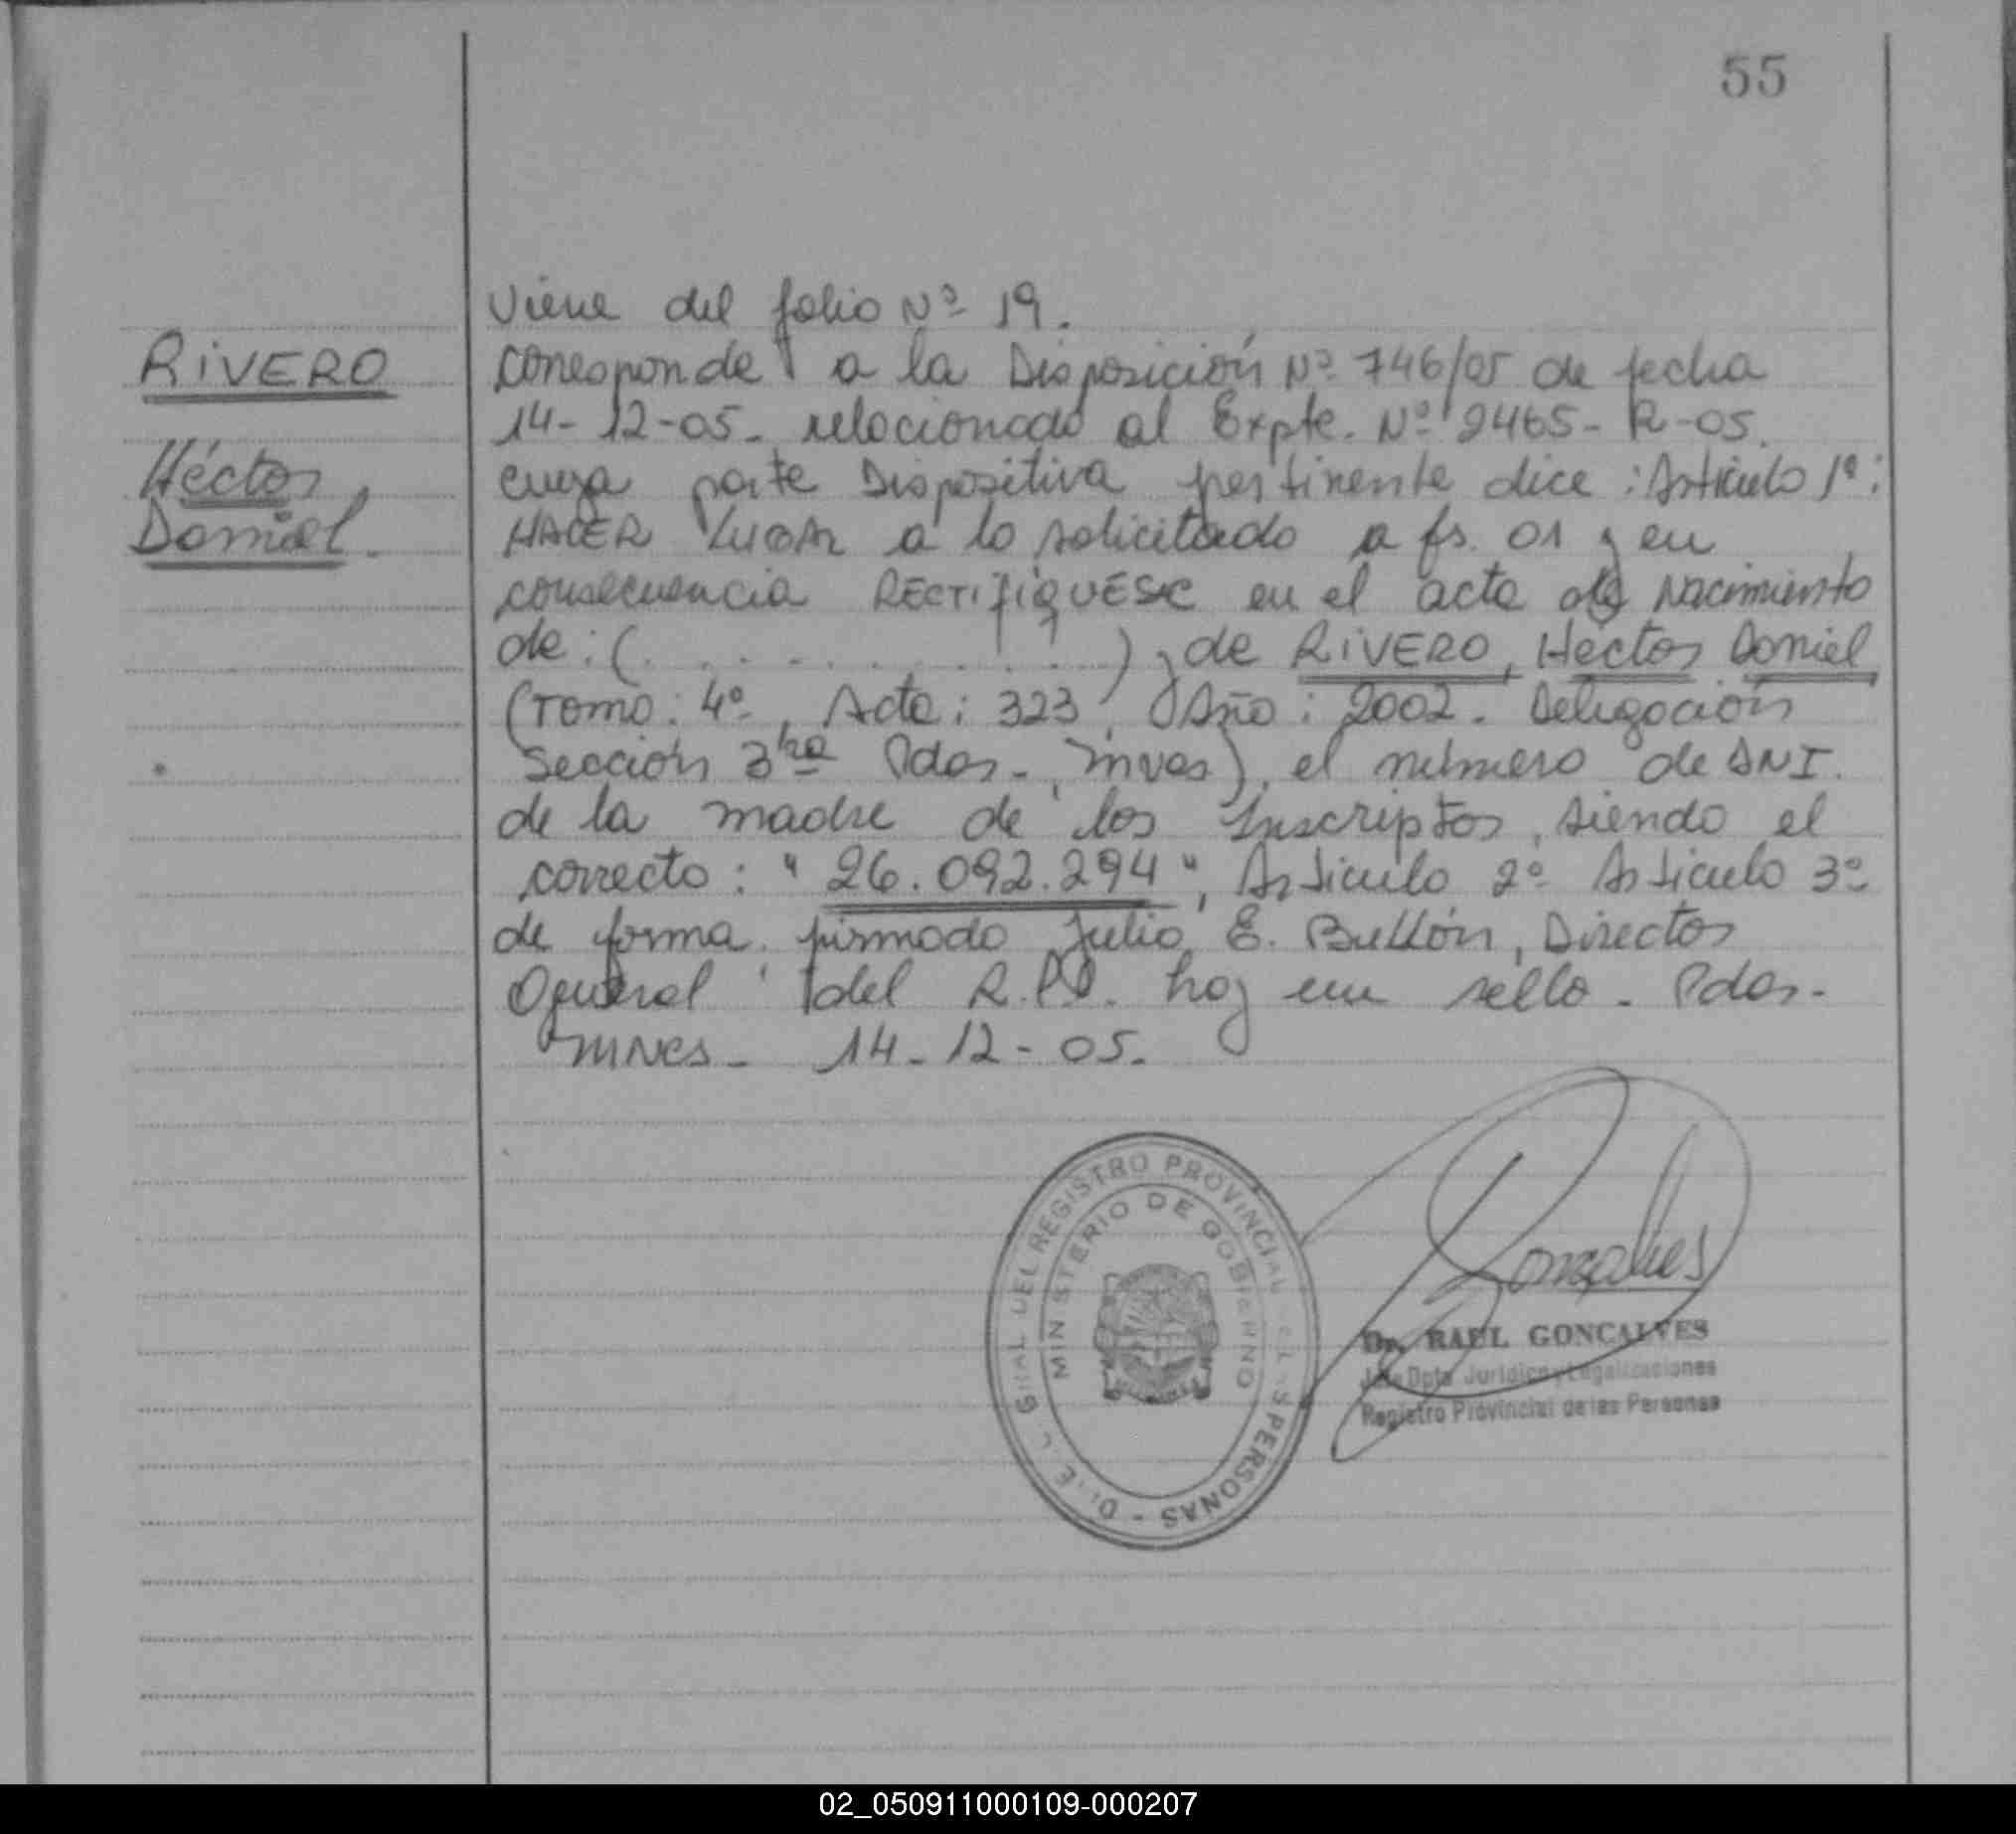 55
Viene del folio Nº 19.
RIVERO
Corresponde a la Disposición Nº 746/05 de fecha
14-12-05. relacionado al Expte. Nº 2465-R-05.
Héctor
Daniel.
cuya parte Dispositiva pertinente dice: Artículo 1º:
HACER LUGAR a lo solicitado a fs. 01 y en
consecuencia RECTIFIQUESE en el acta de nacimiento
de: (. . . . . . . . . . .) y de RIVERO, Héctor Daniel
(Tomo: 4º, Acta: 323, Año: 2002. Delegación
Sección 3ra Pdas. Mnes), el número de DNI.
de la madre de los Inscriptos, siendo el
correcto: "26.092.294", Artículo 2º Artículo 3º
de forma. firmado Julio E. Bullón, Director
General del R.P.P. hay un sello. Pdas.
Mnes. 14-12-05.
REGISTRO PROVINCIAL DE LAS PERSONAS - DIRECC GRAL DEL
MINISTERIO DE GOBIERNO
Goncalves
Dr. RAUL GONCALVES
Jefe Dpto Jurídico y Legalizaciones
Registro Provincial de las Personas
02_050911000109-000207